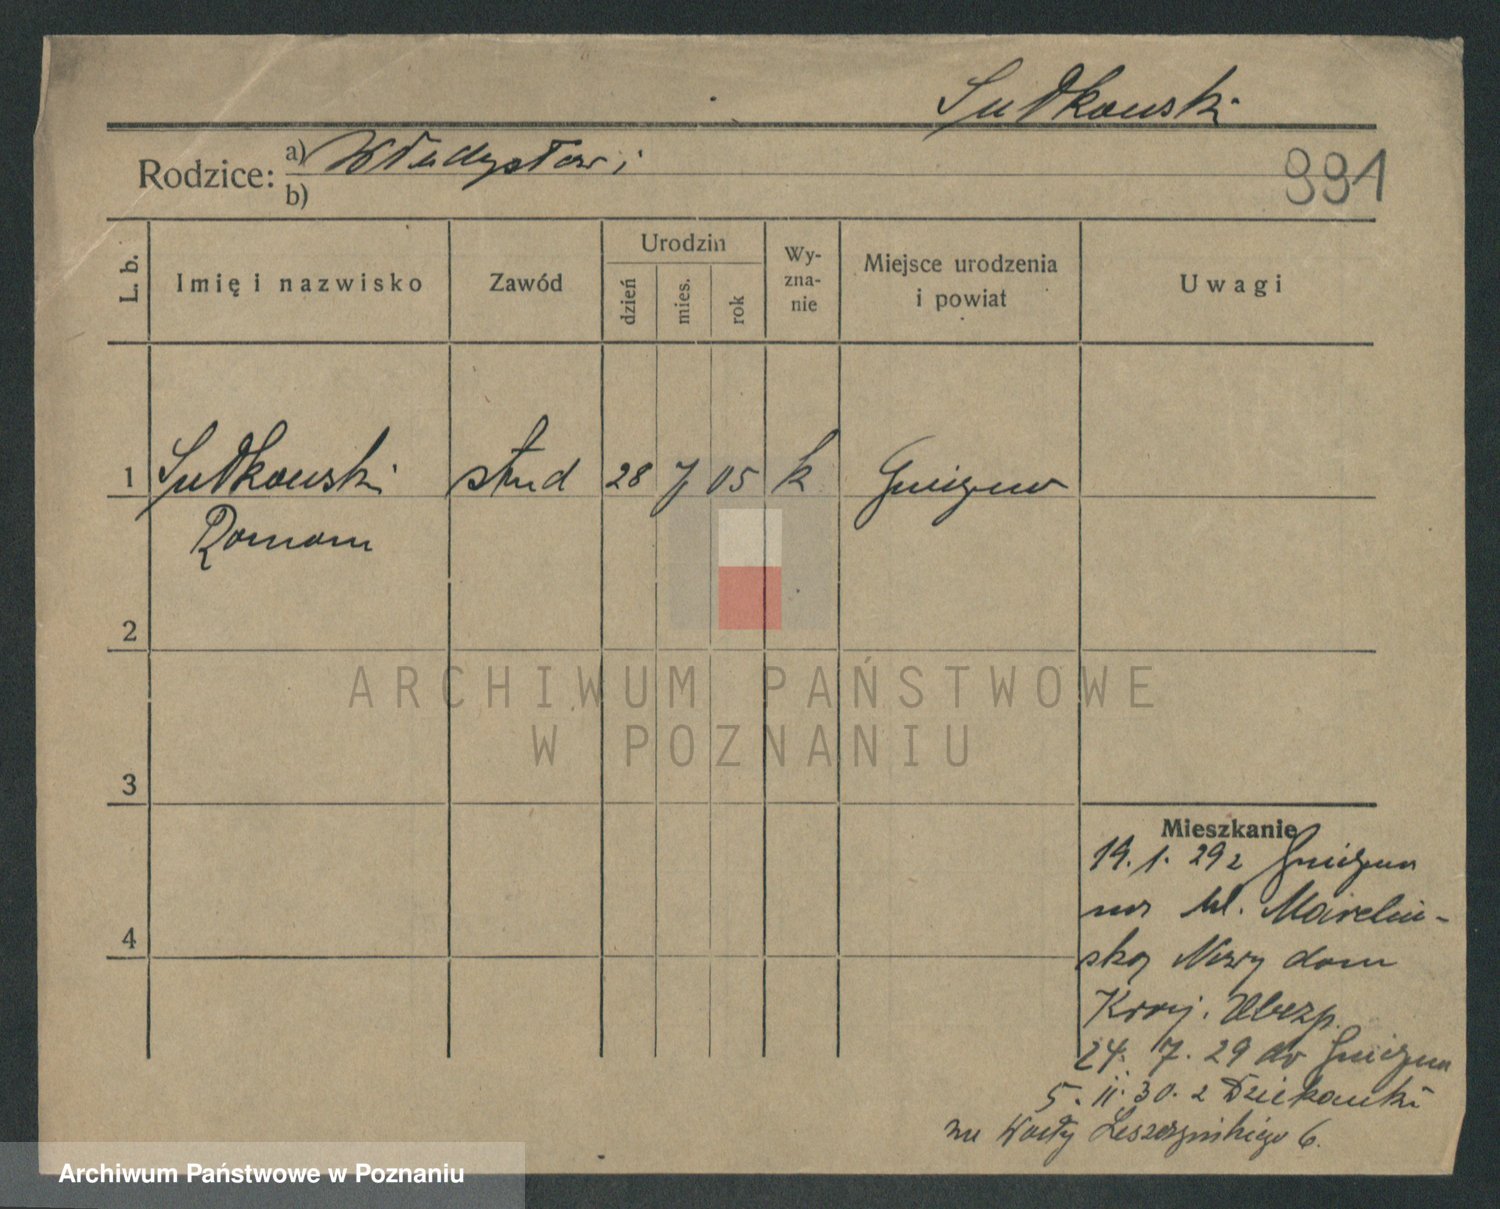 Sułkowski
Rodzice: a) Władysław i
b)
991
L. b.
Imię i nazwisko
Zawód
Urodzin
dzień
mies.
rok
Wy-
zna-
nie
Miejsce urodzenia
i powiat
Uwagi
1 Sułkowski stud 28 7 05 k Gniezno
Roman
2
3
4
Mieszkanie
19. 1. 29 z Gniezna
na ul. Marceliń-
ską Nowy dom
Kraj. Ubezp.
24. 7. 29 do Gniezna
5. II. 30. z Dziekanki
na Wały Leszczyńskiego 6.
ARCHIWUM PAŃSTWOWE
W POZNANIU
Archiwum Państwowe w Poznaniu